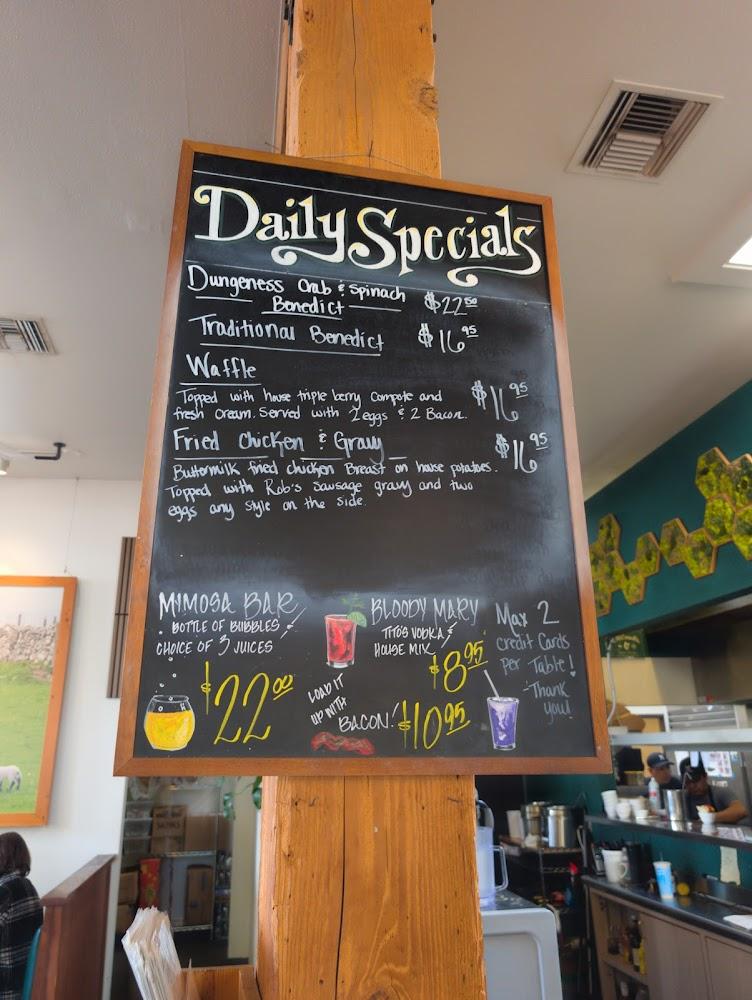 Daily Specials
Dungeness Crab & Spinach $22.50
Benedict
Traditional Benedict $16.95
Waffle
Topped with house triple berry compote and $16.95
fresh cream. Served with 2 eggs & 2 Bacon.
Fried Chicken & Gravy $16.95
Buttermilk fried chicken Breast on house potatoes.
Topped with Rob's Sausage gravy and two
eggs any style on the side.
MIMOSA BAR
BOTTLE OF BUBBLES
CHOICE OF 3 JUICES
$22.00
BLOODY MARY
TITO'S VODKA &
HOUSE MIX
$8.95
LOAD IT
UP WITH
BACON! $10.95
Max 2
Credit Cards
Per Table!
Thank
you!